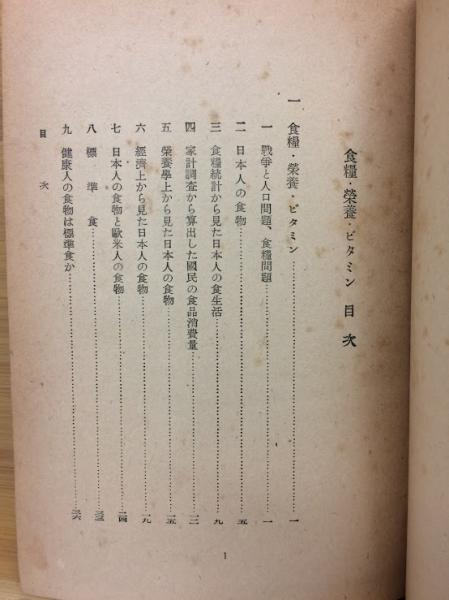 食糧・榮養・ビタミン 目次
一 食糧・榮養・ビタミン……一
一 戰爭と人口問題、食糧問題……一
二 日本人の食物……五
三 食糧統計から見た日本人の食生活……九
四 家計調査から算出した國民の食品消費量……一二
五 榮養學上から見た日本人の食物……一五
六 經濟上から見た日本人の食物……一九
七 日本人の食物と歐米人の食物……二四
八 標準食……三三
九 健康人の食物は標準食か……三六
目次
1